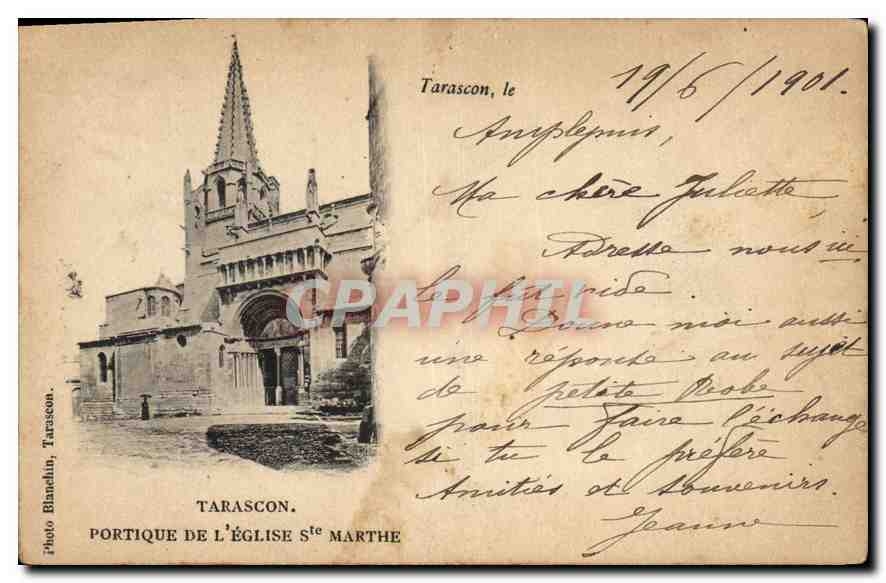 Tarascon, le 19/6/1901.
Amplepuis,
Ma chère Juliette,
Adresse nous ici
le fut vide.
Donne moi aussi
une réponse au sujet
de petite Robe
pour faire l'échange
si tu le préfère
Amitiés et souvenirs.
Jeanne
CPAPHIL
Photo Blanchin, Tarascon.
TARASCON.
PORTIQUE DE L'ÉGLISE Ste MARTHE